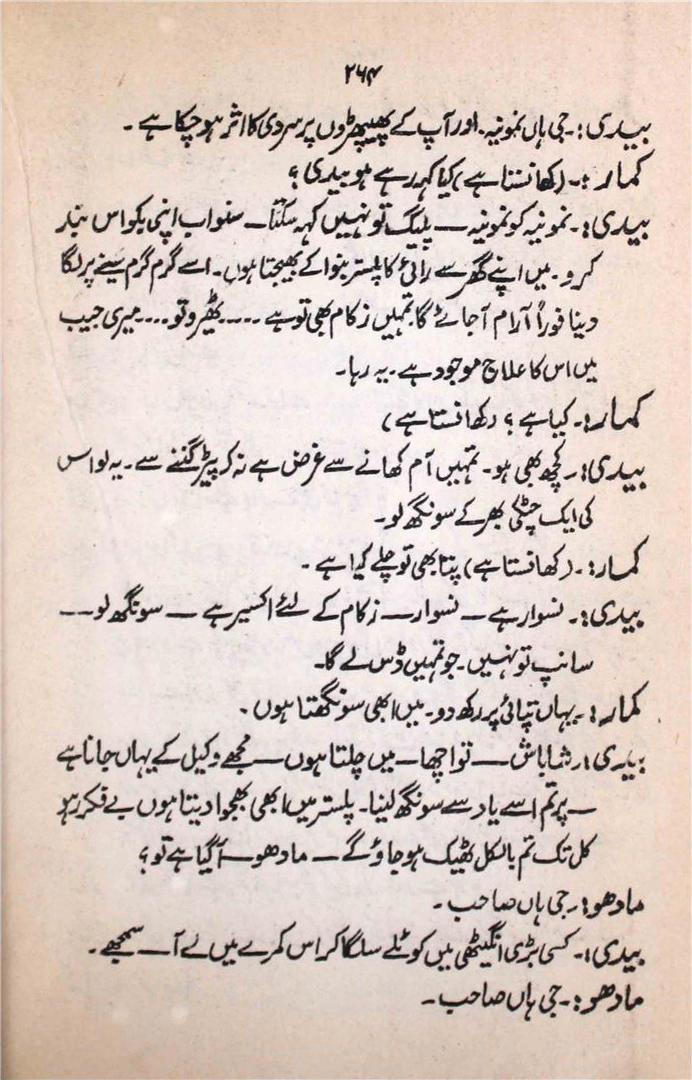 ۲۶۴
بیدی:۔ جی ہاں نمونیہ۔ اور آپ کے پھیپھڑوں پر سردی کا اثر ہو چکا ہے۔
کمار:۔ (کھانستا ہے) کیا کہہ رہے ہو بیدی؟
بیدی:۔ نمونیہ کو نمونیہ ــ پلیگ تو نہیں کہہ سکتا ــ سنو اب اپنی بکواس بند
کرو۔ میں اپنے گھر سے رائی کا پلستر بنوا کے بھیجتا ہوں۔ اسے گرم گرم سینے پر لگا
دینا فوراً آرام آجائے گا۔ تمہیں زکام بھی تو ہے ۔۔۔۔ ٹھیرو تو ۔۔۔۔ میری جیب
میں اس کا علاج موجود ہے۔ یہ رہا۔
کمار:۔ کیا ہے؟ (کھانستا ہے)
بیدی:۔ کچھ بھی ہو۔ تمہیں آم کھانے سے غرض ہے نہ کہ پیڑ گننے سے۔ یہ لو اس
کی ایک چٹکی بھر کے سونگھ لو۔
کمار:۔ (کھانستا ہے) پتا بھی تو چلے کیا ہے۔
بیدی:۔ نسوار ہے ــ نسوار ــ زکام کے لئے اکسیر ہے ــ سونگھ لو ــــ
سانپ تو نہیں۔ جو تمہیں ڈس لے گا۔
کمار:۔ یہاں تپائی پر رکھ دو۔ میں ابھی سونگھتا ہوں۔
بیدی:۔ شاباش ــ تو اچھا ــ میں چلتا ہوں ــ مجھے وکیل کے یہاں جانا ہے
ــ پر تم اسے یاد سے سونگھ لینا۔ پلستر میں ابھی بھجوا دیتا ہوں بے فکر رہو
کل تک تم بالکل ٹھیک ہو جاؤ گے ــ مادھو ــ آگیا ہے تو؟
مادھو:۔ جی ہاں صاحب۔
بیدی:۔ کسی بڑی انگیٹھی میں کوئلے سلگا کر اس کمرے میں لے آ ــ سمجھے۔
مادھو:۔ جی ہاں صاحب۔